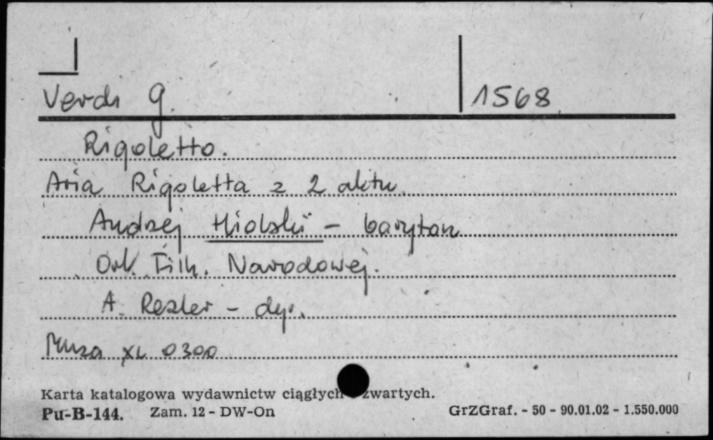 Verdi G. 1568
Rigoletto.
Aria Rigoletta z 2 aktu
Andrzej Hiolski – baryton
Ork. Filh. Narodowej.
A. Rezler – dyr.
Muza XL 0300
Karta katalogowa wydawnictw ciągłych zwartych.
Pu-B-144. Zam. 12 - DW-On GrZGraf. - 50 - 90.01.02 - 1.550.000